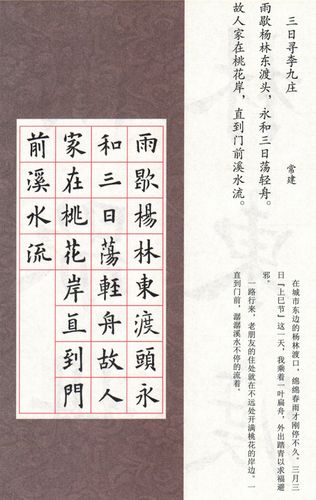 三日寻李九庄
常建
雨歇杨林东渡头，永和三日荡轻舟。
故人家在桃花岸，直到门前溪水流。
在城市东边的杨林渡口，绵绵春雨才刚停不久。三月三
日『上巳节』这一天，我乘着一叶扁舟，外出踏青以求福避
邪。
一路行来，老朋友的住处就在不远处开满桃花的岸边，一
直到门前，潺潺溪水不停的流着。
雨歇楊林東渡頭永
和三日蕩軽舟故人
家在桃花岸直到門
前溪水流